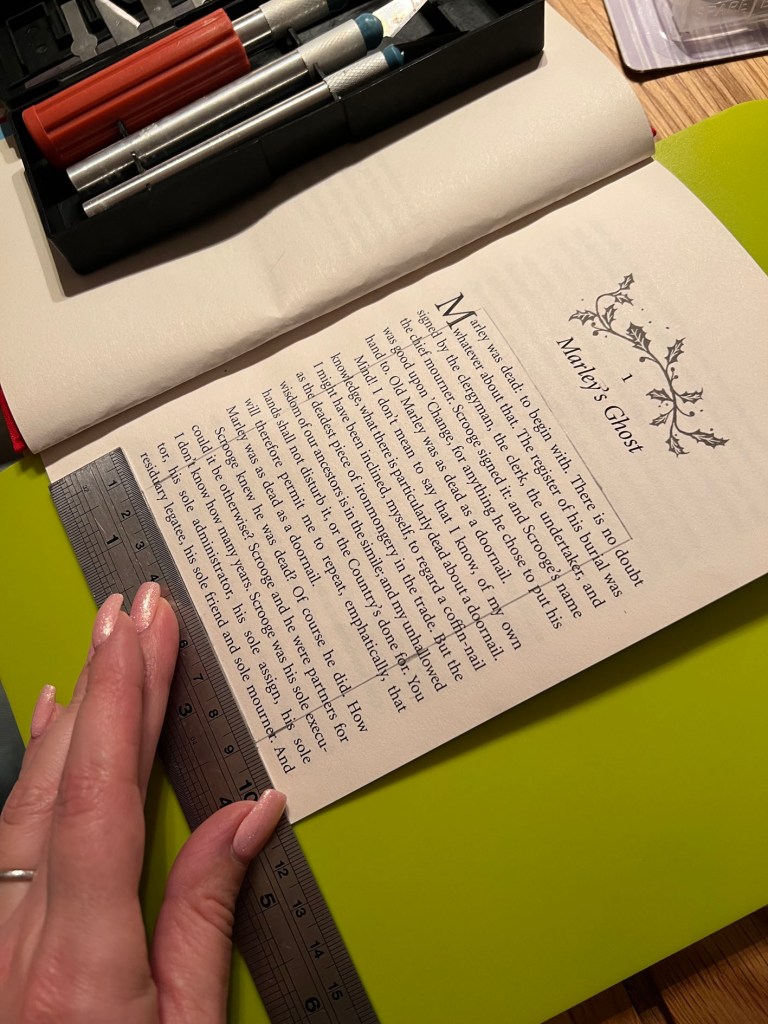 1
Marley's Ghost
Marley was dead: to begin with. There is no doubt
whatever about that. The register of his burial was
signed by the clergyman, the clerk, the undertaker, and
the chief mourner. Scrooge signed it: and Scrooge's name
was good upon 'Change, for anything he chose to put his
hand to. Old Marley was as dead as a doornail.
Mind! I don't mean to say that I know, of my own
knowledge, what there is particularly dead about a doornail.
I might have been inclined, myself, to regard a coffin-nail
as the deadest piece of ironmongery in the trade. But the
wisdom of our ancestors is in the simile; and my unhallowed
hands shall not disturb it, or the Country's done for. You
will therefore permit me to repeat, emphatically, that
Marley was as dead as a doornail.
Scrooge knew he was dead? Of course he did. How
could it be otherwise? Scrooge and he were partners for
I don't know how many years. Scrooge was his sole execu-
tor, his sole administrator, his sole assign, his sole
residuary legatee, his sole friend and sole mourner. And
1 2 3 4 6 7 8 9 10 12 13 14 15
1 3 4 5 6